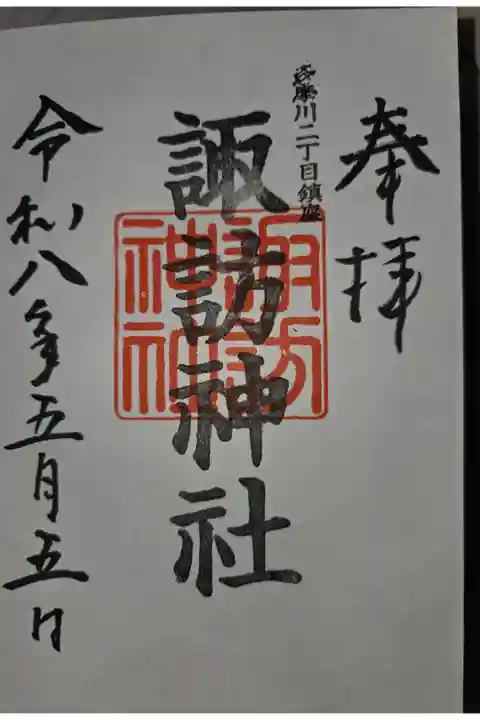 奉拝
川二丁目鎮座
諏訪神社
諏訪
神社
令和八年五月五日